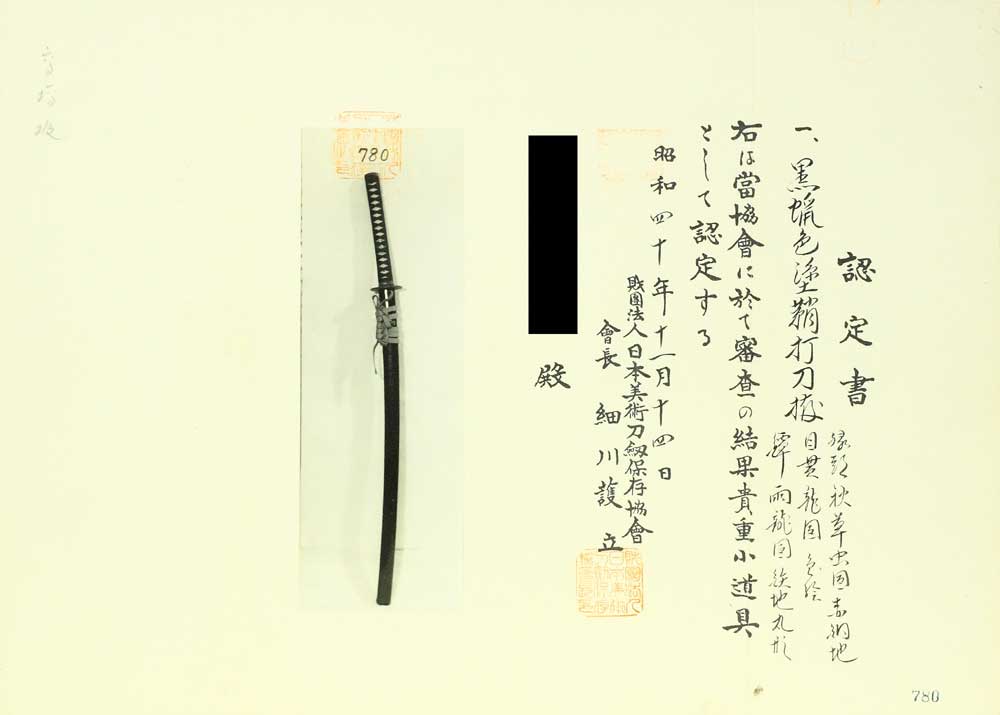 認定書
一、黒蝋色塗鞘打刀拵
縁頭秋草虫図赤銅地
目貫龍図色絵
鐔雨龍図鉄地丸形
右は當協會に於て審査の結果貴重小道具
として認定する
昭和四十年十一月十四日
財團法人日本美術刀劔保存協會
會長 細川護立
殿
780
780